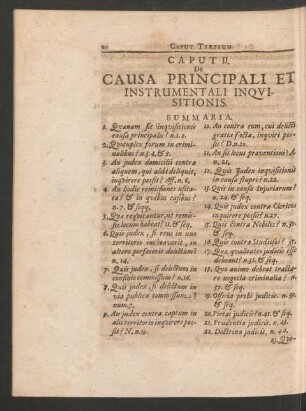 20 CAPUT TERTIUM.
CAPUT II.
De
CAUSA PRINCIPALI ET
INSTRUMENTALI INQVI-
SITIONIS.
SUMMARIA.
1. Qvænam sit inquisitionis
causa principalis? n.1.2.
2. Quotuplex forum in crimi-
nalibus? n.3.4. & 5.
3. An judex domicilii contra
aliquem, qui alibi deliquit,
inqvirere possit? Aff. n. 6.
4. An hodie remissiones usita-
tæ? & in qvibus casibus?
n.7. & seqq.
5. Qvæ requirantur, ut remis-
sio locum habeat? 11. & seq.
6. Quis judex, si reus in uno
territorio inchoaverit, in
altero perfecerit delictum?
n. 14.
7. Quis judex, si delictum in
confinio commissum? n.16.
8. Quis judex, si delictum in
via publica commissum?
num.
9. An judex contra captum in
alio territorio inquirere pos-
sit? N. n.19.
10. An contra eum, cui delicti
gratia facta, inquiri pos-
sit? D. n.20.
11. An sit locus præventioni? A.
12. Quis judex inquisitionis
in causa stupri? n.22.
13. Quis in causa Injuriarum?
n. 24. & seq.
14. Quis judex contra Clericos
inquirere possit? n.27.
15. Quis contra Nobiles? n.
& seq.
16. Quis contra Studiosos?
17. Qva qvalitate judices esse
debeant? n. & seq.
18. Qvo animo debeat tracta-
re negotia criminalia? n.
37. & seq.
19. Officia probi judicis. n.
& seq.
20. Pietas judicis n.41. & seq.
21. Prudentia judicis. n.43.
22. Doctrina judicis. n. 44.
23. Qvo-